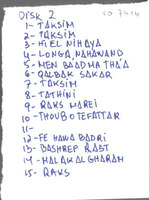 DISK 2
CD 7414
1- TAKSIM
2- TAKSIM
3- HIEL NIHAYA
4- LONGA NAHAWAND
5- MEN BAADMATHA'A
6- QALBAK SAKAR
7- TAKSIM
8- TATHINI
9- RAKS MAREI
10- THOUBOTEFATTAR
11-
12- FE HAWA BADRI
13- BASHREP RAST
14- MALAKALGHARAM
15- RAKS